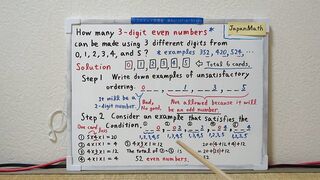 How many 3-digit even numbers*
JapanMath
can be made using 3 different digits from
0, 1, 2, 3, 4, and 5 ? * examples 352, 420, 524, ...
Solution 0 1 2 3 4 5 Total 6 cards.
Step 1 Write down examples of unsatisfactory
ordering. 0 _ _ , _ _ 1 , _ _ 3 , _ _ 5
It will be a
2-digit number.
Bad, No good.
Not allowed because it will
be an odd number.
Step 2 Consider an example that satisfies the
condition.
One card
① 5×4×1 = 20
② 4×1×1 = 4
③ 4×3×1 = 12
④ 4×1×1 = 4
⑤ 4×3×1 = 12
The total of ①~⑤ is
52 even numbers.
= 52